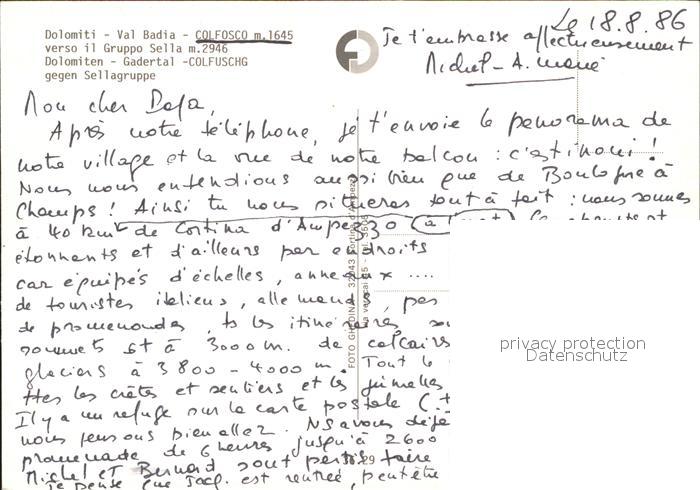 Dolomiti - Val Badia - COLFOSCO m.1645
verso il Gruppo Sella m.2946
Dolomiten - Gadertal -COLFUSCHG
gegen Sellagruppe
Le 18.8.86
Je t'embrasse affectueusement
Michel - A. Marie
Mon cher
Après notre téléphone, je t'envoie le panorama de
notre village et la vue de notre balcon : c'est inoui !
Nous nous entendions aussi bien que de Boulogne à
Champs ! Ainsi tu nous situeras tout à fait : nous sommes
à 40 km de Cortina d'Ampezzo
étonnants et d'ailleurs par endroits
car équipés d'échelles, anneaux ....
de touristes italiens, allemands, pas
de promenades, ts les itinéraires
sommets st à 3000 m. de calcaires
glaciers à 3800 - 4000 m. Tout le
ttes les crêtes et sentiers et les jumelles
Il y a un refuge sur la carte postale
nous pensons bien allez. Ns avons déjà
promenade de 6 heures jusqu'à 2600
Michel et Bernard sont partis faire
Je pense que Jacq. est rentrée, peut être
FOTO GHEDINA - 32043 Cortina d'Ampezzo
privacy protection
Datenschutz